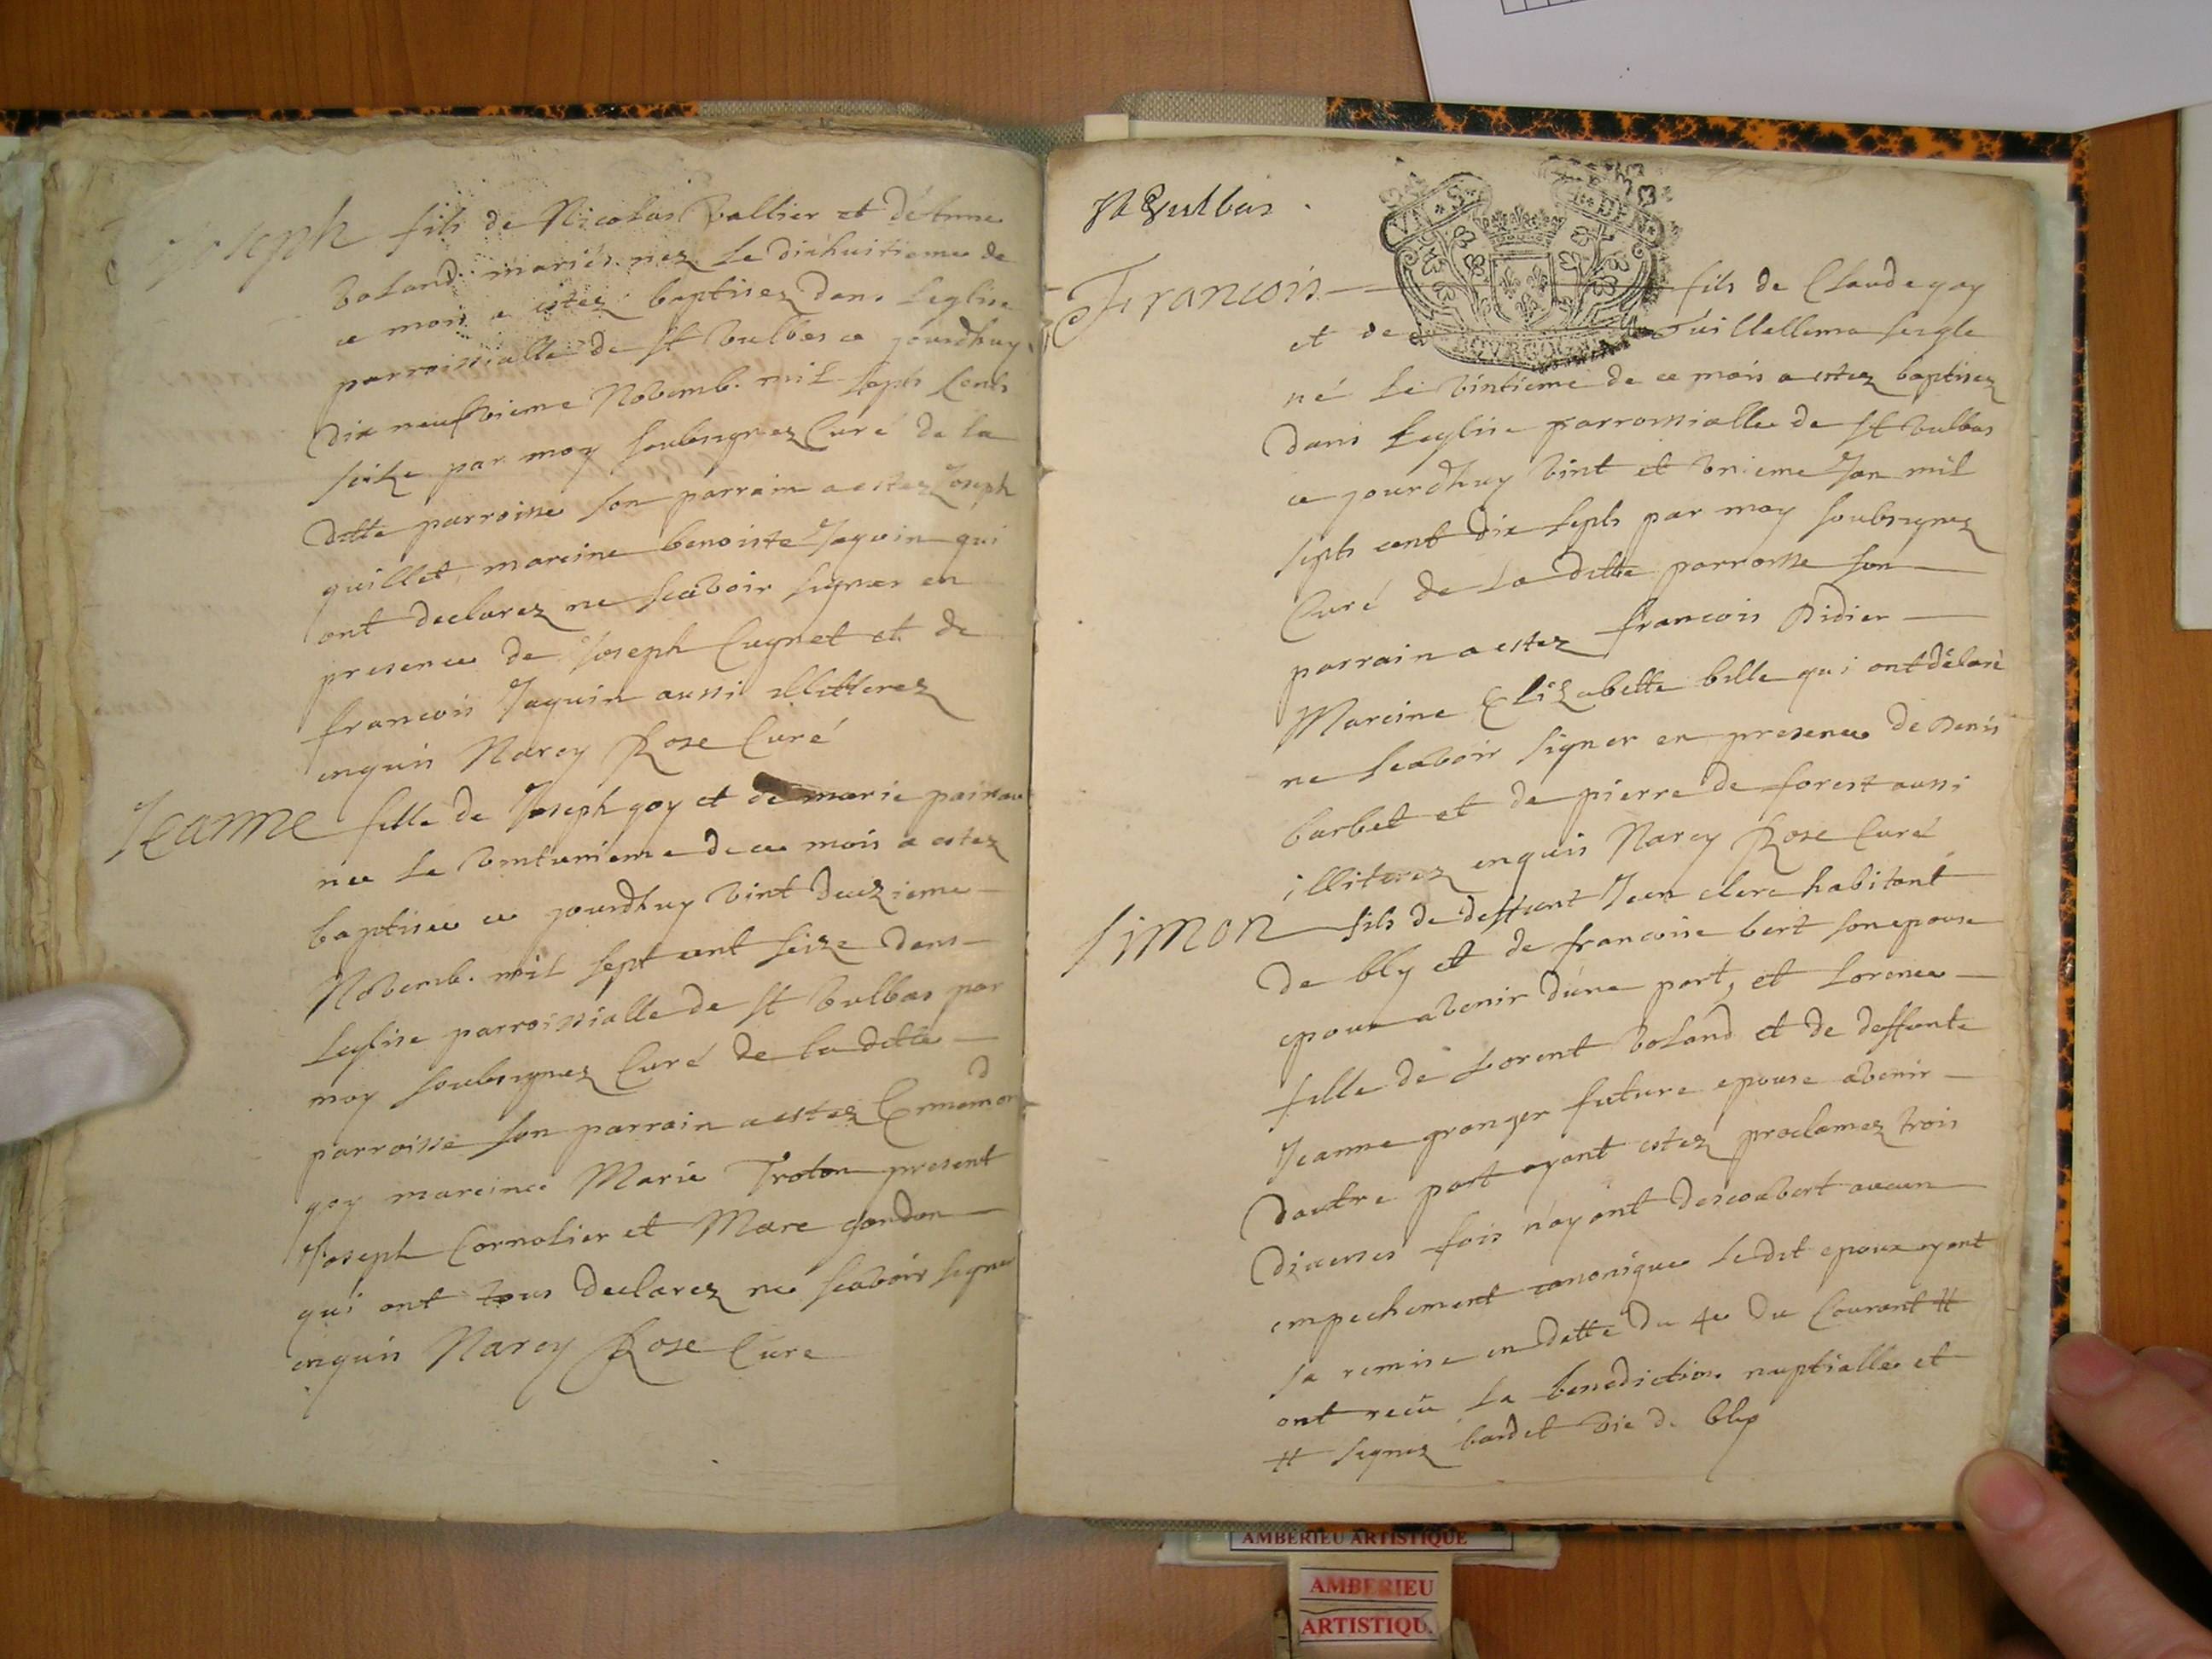 Joseph fils de Nicolas Vallier et d'Anne
Voland mariés nez le dixhuitieme de
ce mois a estez baptisez dans Leglise
parroissialle de St Vulbas ce jourdhuy
dix neufvieme Novemb. mil septs cents
seize par moy soubsignez Curé de la
ditte parroisse son parrain a estez Joseph
guillet mareine benoiste Jaquin qui
ont declarez ne scavoir signer en
presence de Joseph Cugnet et de
francois Jaquin aussi illitterez
enquis Narcy Roze Curé
Jeanne fille de Joseph goy et de marie
nee le vintunieme de ce mois a estez
baptisee ce jourdhuy vint deuzieme
Novemb. mil sept cent seize dans
Leglise parroissialle de St Vulbas par
moy soubsignez Curé de la ditte
parroisse son parrain a estez Ennemond
goy mareine Marie Troton present
Joseph Cornalier et Marc gondon
qui ont tous declarez ne scavoir signer
enquis Narcy Roze Cure
St Vulbas.
BOURGOGNE
Francois fils de Claude goy
et de Guillellema
né le vintieme de ce mois a estez baptisez
dans Leglise parroissialle de St Vulbas
ce jourdhuy vint et unieme Jan mil
septs cent dix septs par moy soubsignez
Curé de la ditte parroisse son
parrain a estez francois Didier
Mareine Elizabette bille qui ont déclaré
ne scavoir signer en presence de Denis
barbet et de pierre de forest aussi
illiterez enquis Narcy Roze Curé
Simon fils de deffunt Jean clerc habitant
de bly et de francoise bert son epouse
epoux avenir d'une part, et Lorence
fille de Lorent Voland et de deffunte
Jeanne granger future epouse avenir
dautre part ayant estez proclamez trois
diverses fois n'ayant descouvert aucun
empechement canonique ledit epoux ayant
sa remise en datte du 4e du Courant #
ont recu la benediction nuptialle et
# signez bardet vic de bly
AMBERIEU ARTISTIQUE
AMBERIEU
ARTISTIQU